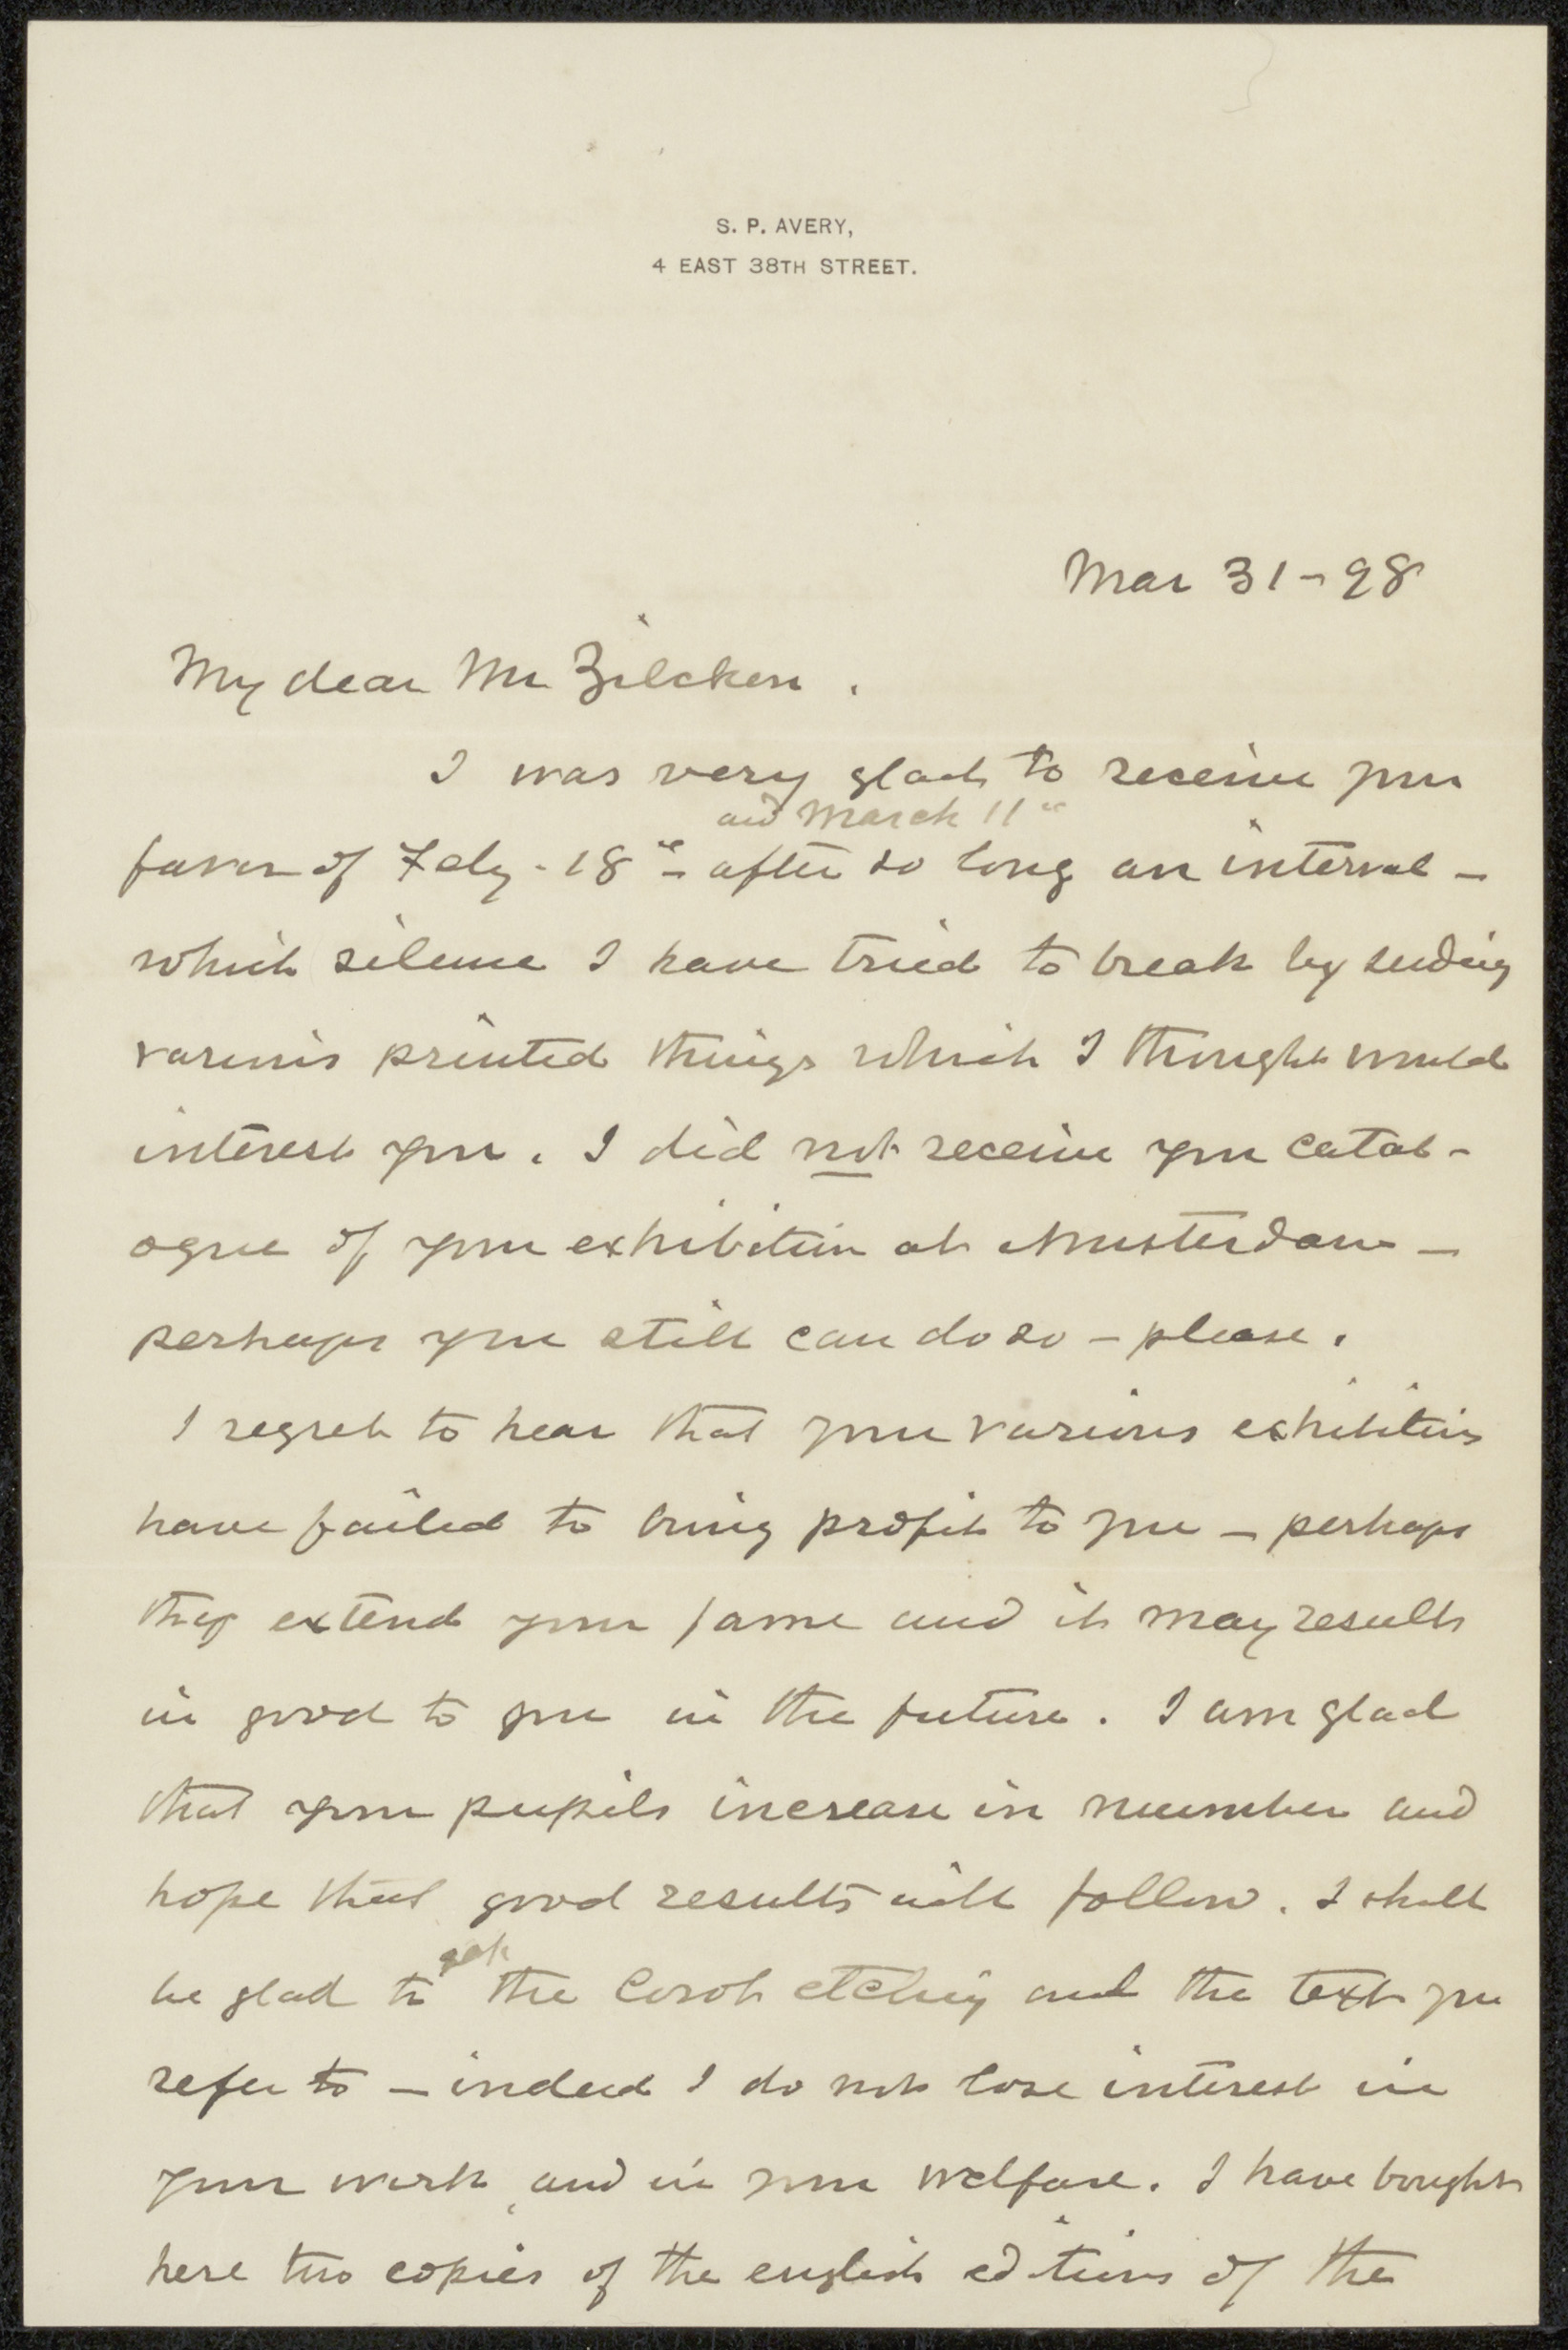 S. P. AVERY,
4 EAST 38TH STREET.
Mar 31-98
My dear Mr Zilcken.
I was very glad to receive your
and March 11"
favor of Feby. 18" - after so long an interval -
which silence I have tried to break by sending
various printed things which I thought would
interest you. I did not receive your catal-
ogue of your exhibition at Amsterdam -
perhaps you still can do so - please.
I regret to hear that your various exhibitions
have failed to bring profit to you - perhaps
they extend your fame and it may result
in good to you in the future. I am glad
that your pupils increase in number and
hope that good results will follow. I shall
get
be glad to the Corot etching and the text you
refer to - indeed I do not lose interest in
your work, and in your welfare. I have bought
here two copies of the english editions of the